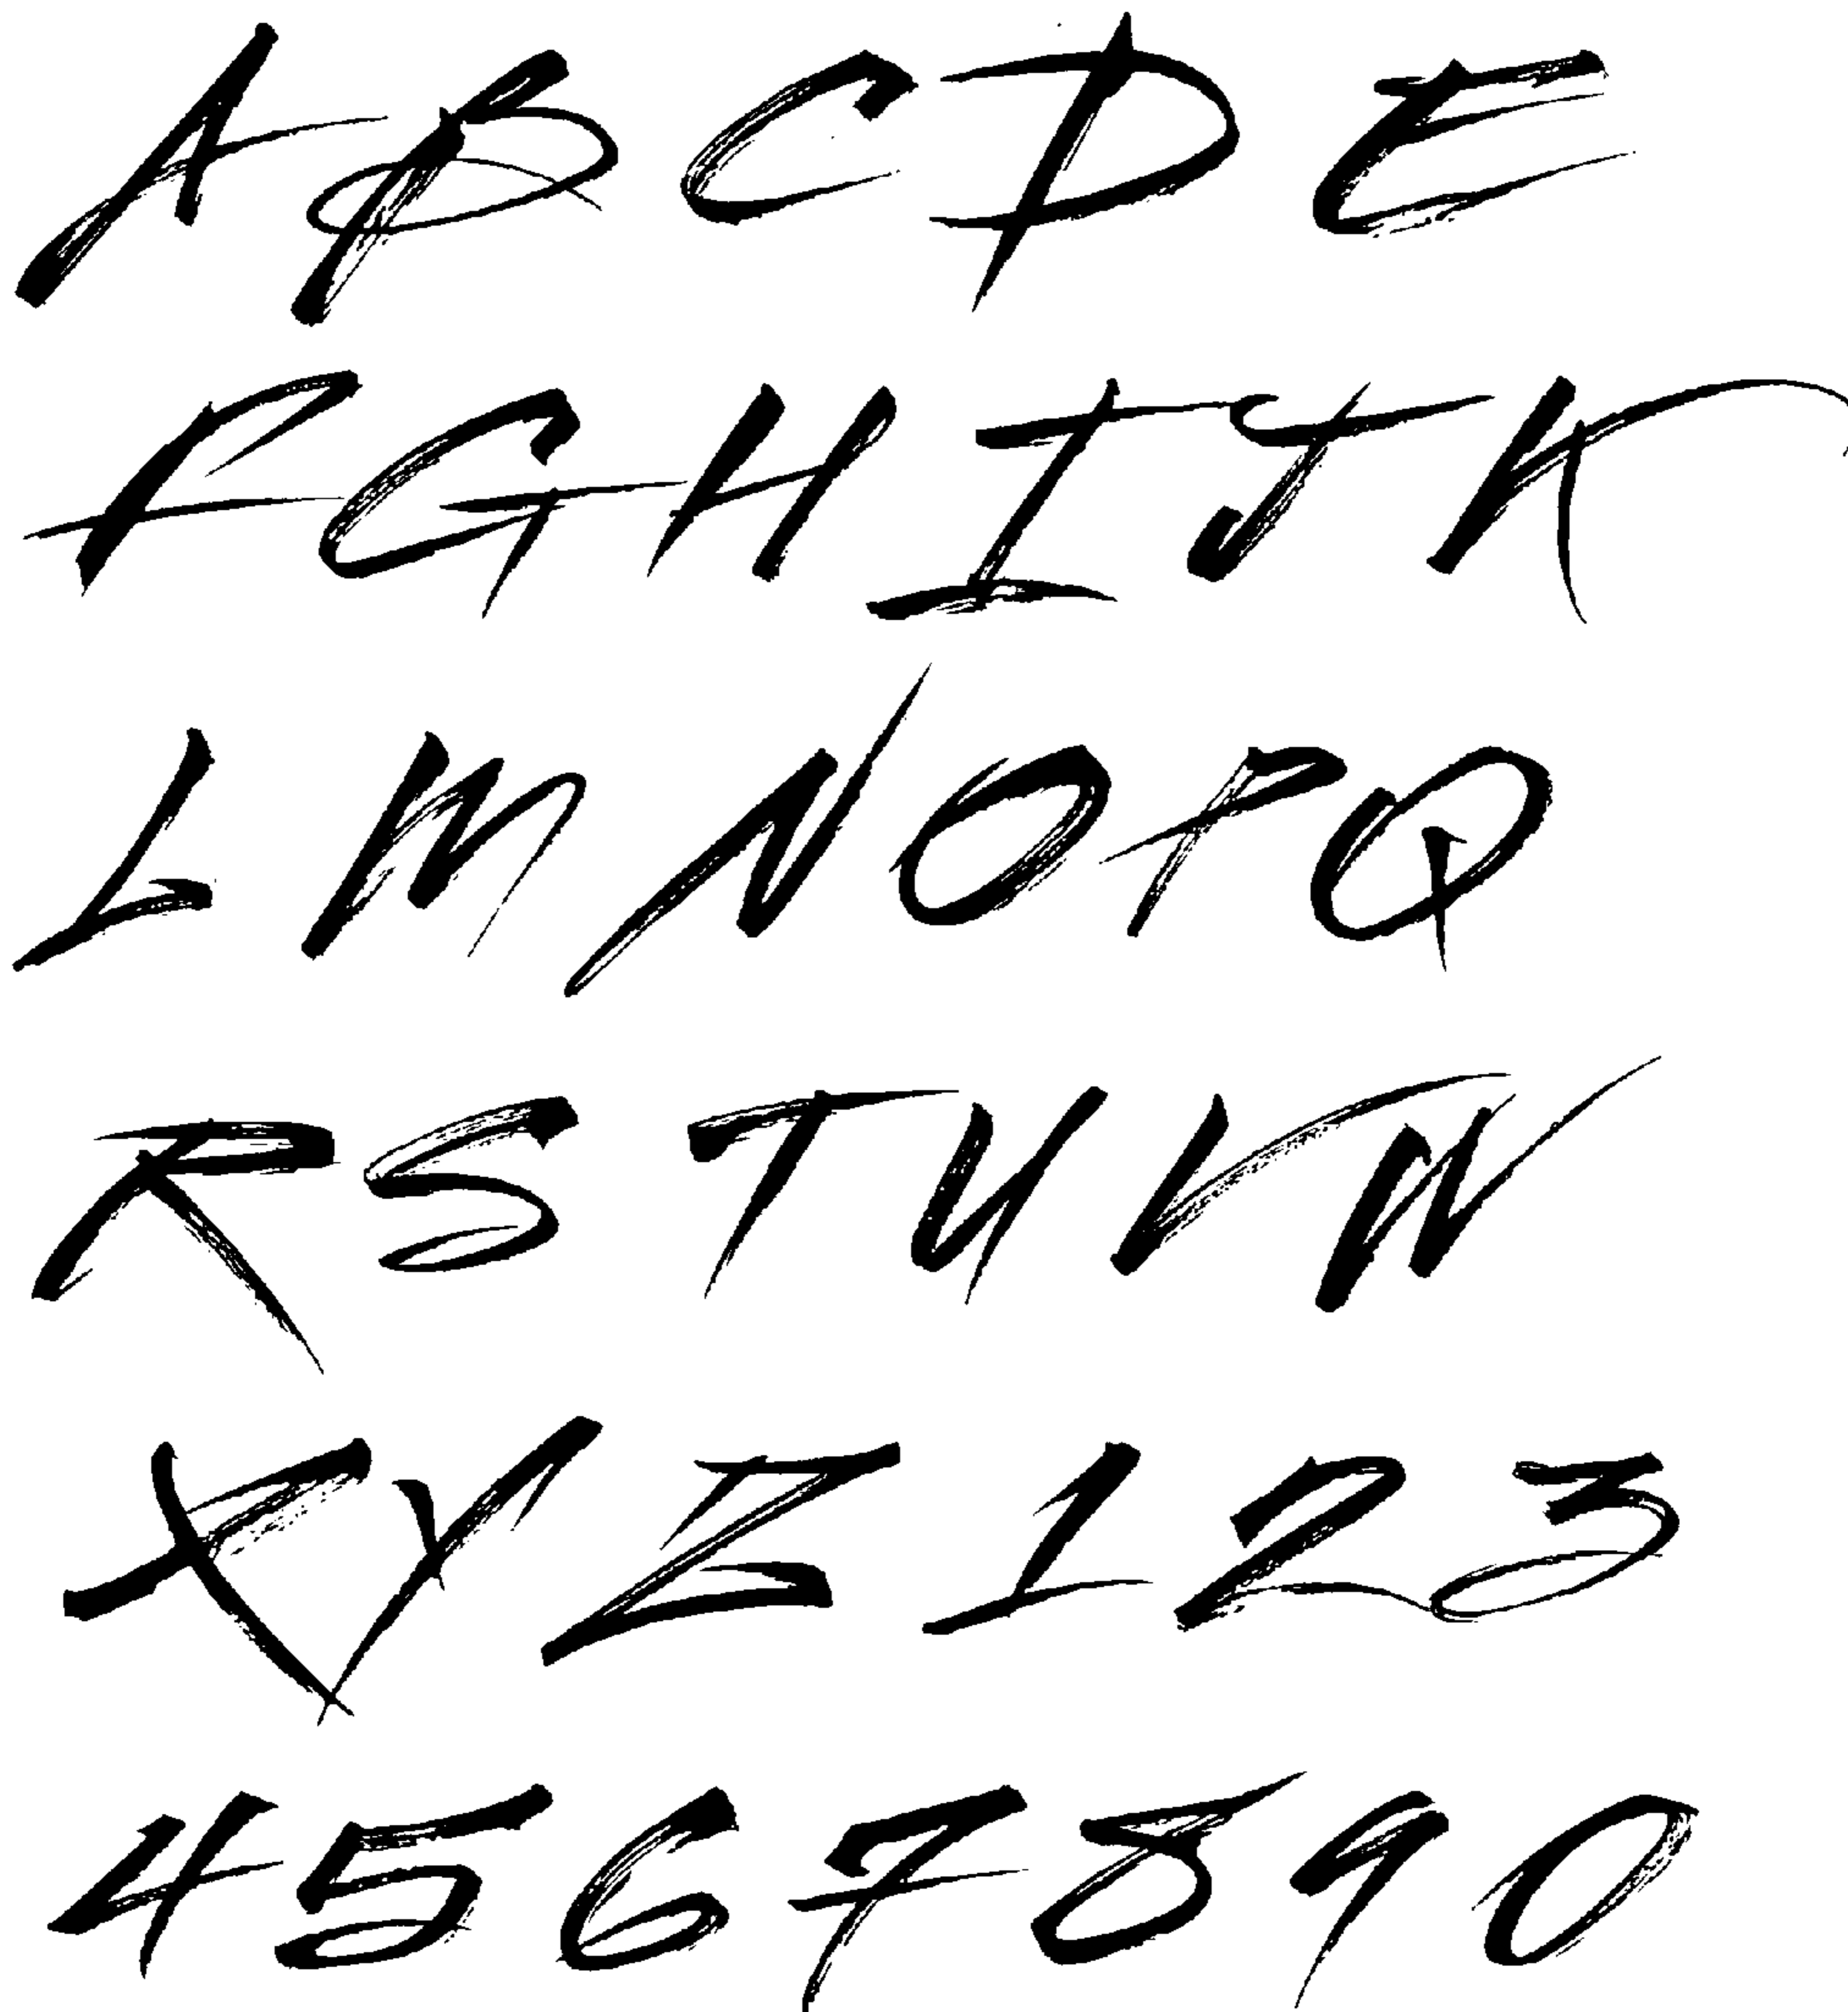 A B C D E
F G H I J K
L M N O P Q
R S T U V W
X Y Z 1 2 3
4 5 6 7 8 9 0